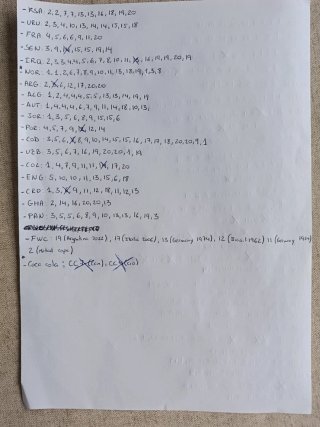 - KSA: 2, 2, 7, 7, 13, 13, 16, 18, 19, 20
- URU: 2, 3, 4, 10, 13, 14, 14, 15, 18, 20
- FRA: 4, 5, 6, 6, 9, 11, 20
- SEN: 3, 9, 15, 15, 19, 14
- IRQ: 2, 3, 3, 4, 4, 5, 6, 7, 8, 10, 11, 16, 19, 19, 20, 19
- NOR: 1, 2, 2, 6, 7, 8, 9, 10, 11, 13, 18, 19, 1, 3, 8
- ARG: 2, 6, 12, 17, 20, 20
- ALG: 1, 2, 4, 4, 4, 5, 5, 13, 13, 14, 19, 19
- AUT: 1, 4, 4, 4, 6, 7, 9, 11, 14, 18, 10, 13,
- JOR: 1, 3, 5, 6, 8, 9, 15, 15, 6
- POR: 4, 5, 7, 9, 12, 14
- COD: 3, 5, 6, 8, 9, 10, 14, 15, 15, 16, 17, 17, 18, 20, 20, 9, 1
- UZB: 3, 5, 6, 7, 16, 19, 20, 20, 1, 19
- COL: 1, 4, 7, 9, 11, 17, 17, 20
- ENG: 5, 10, 10, 11, 13, 15, 6, 18
- CRO: 1, 3, 9, 11, 12, 18, 11, 12, 13
- GHA: 2, 14, 16, 20, 20, 13
- PAN: 3, 5, 5, 6, 8, 9, 10, 13, 13, 16, 19, 3
- FWC: 19 (Argentina 2022), 17 (Italia 2006), 13 (Germany 1974), 12 (Brasil 1962) 11 (Germany 1954)
2 (
- Coca cola: CC